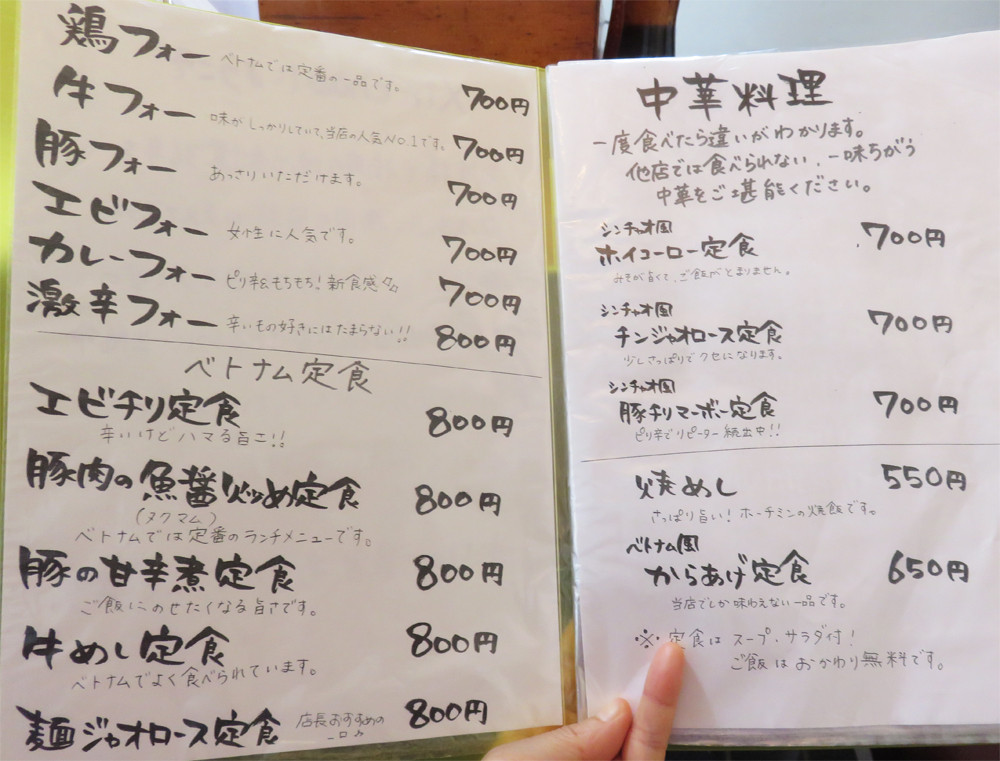 鶏フォー 700円
ベトナムでは定番の一品です。
牛フォー 700円
味がしっかりしていて、当店の人気NO.1です。
豚フォー 700円
あっさりいただけます。
エビフォー 700円
女性に人気です。
カレーフォー 700円
ピリ辛&もちもち!新食感
激辛フォー 800円
辛いもの好きにはたまらない!!
ベトナム定食
エビチリ定食 800円
辛いけどハマる旨さ!!
豚肉の魚醤炒め定食 800円
(ヌクマム)
ベトナムでは定番のランチメニューです。
豚の甘辛煮定食 800円
ご飯にのせたくなる旨さです。
牛めし定食 800円
ベトナムでよく食べられています。
麺ジャオロース定食 800円
店長おすすめの
一品
中華料理
一度食べたら違いがわかります。
他店では食べられない、一味ちがう
中華をご堪能ください。
シンチャオ風
ホイコーロー定食 700円
みそが旨くて、ご飯がとまりません。
シンチャオ風
チンジャオロース定食 700円
少しさっぱりでクセになります。
シンチャオ風
豚チリマーボー定食 700円
ピリ辛でリピーター続出中!!
焼めし 550円
さっぱり旨い!ホーチミンの焼飯です。
ベトナム風
からあげ定食 650円
当店でしか味わえない一品です。
※定食はスープ、サラダ付!
ご飯はおかわり無料です。